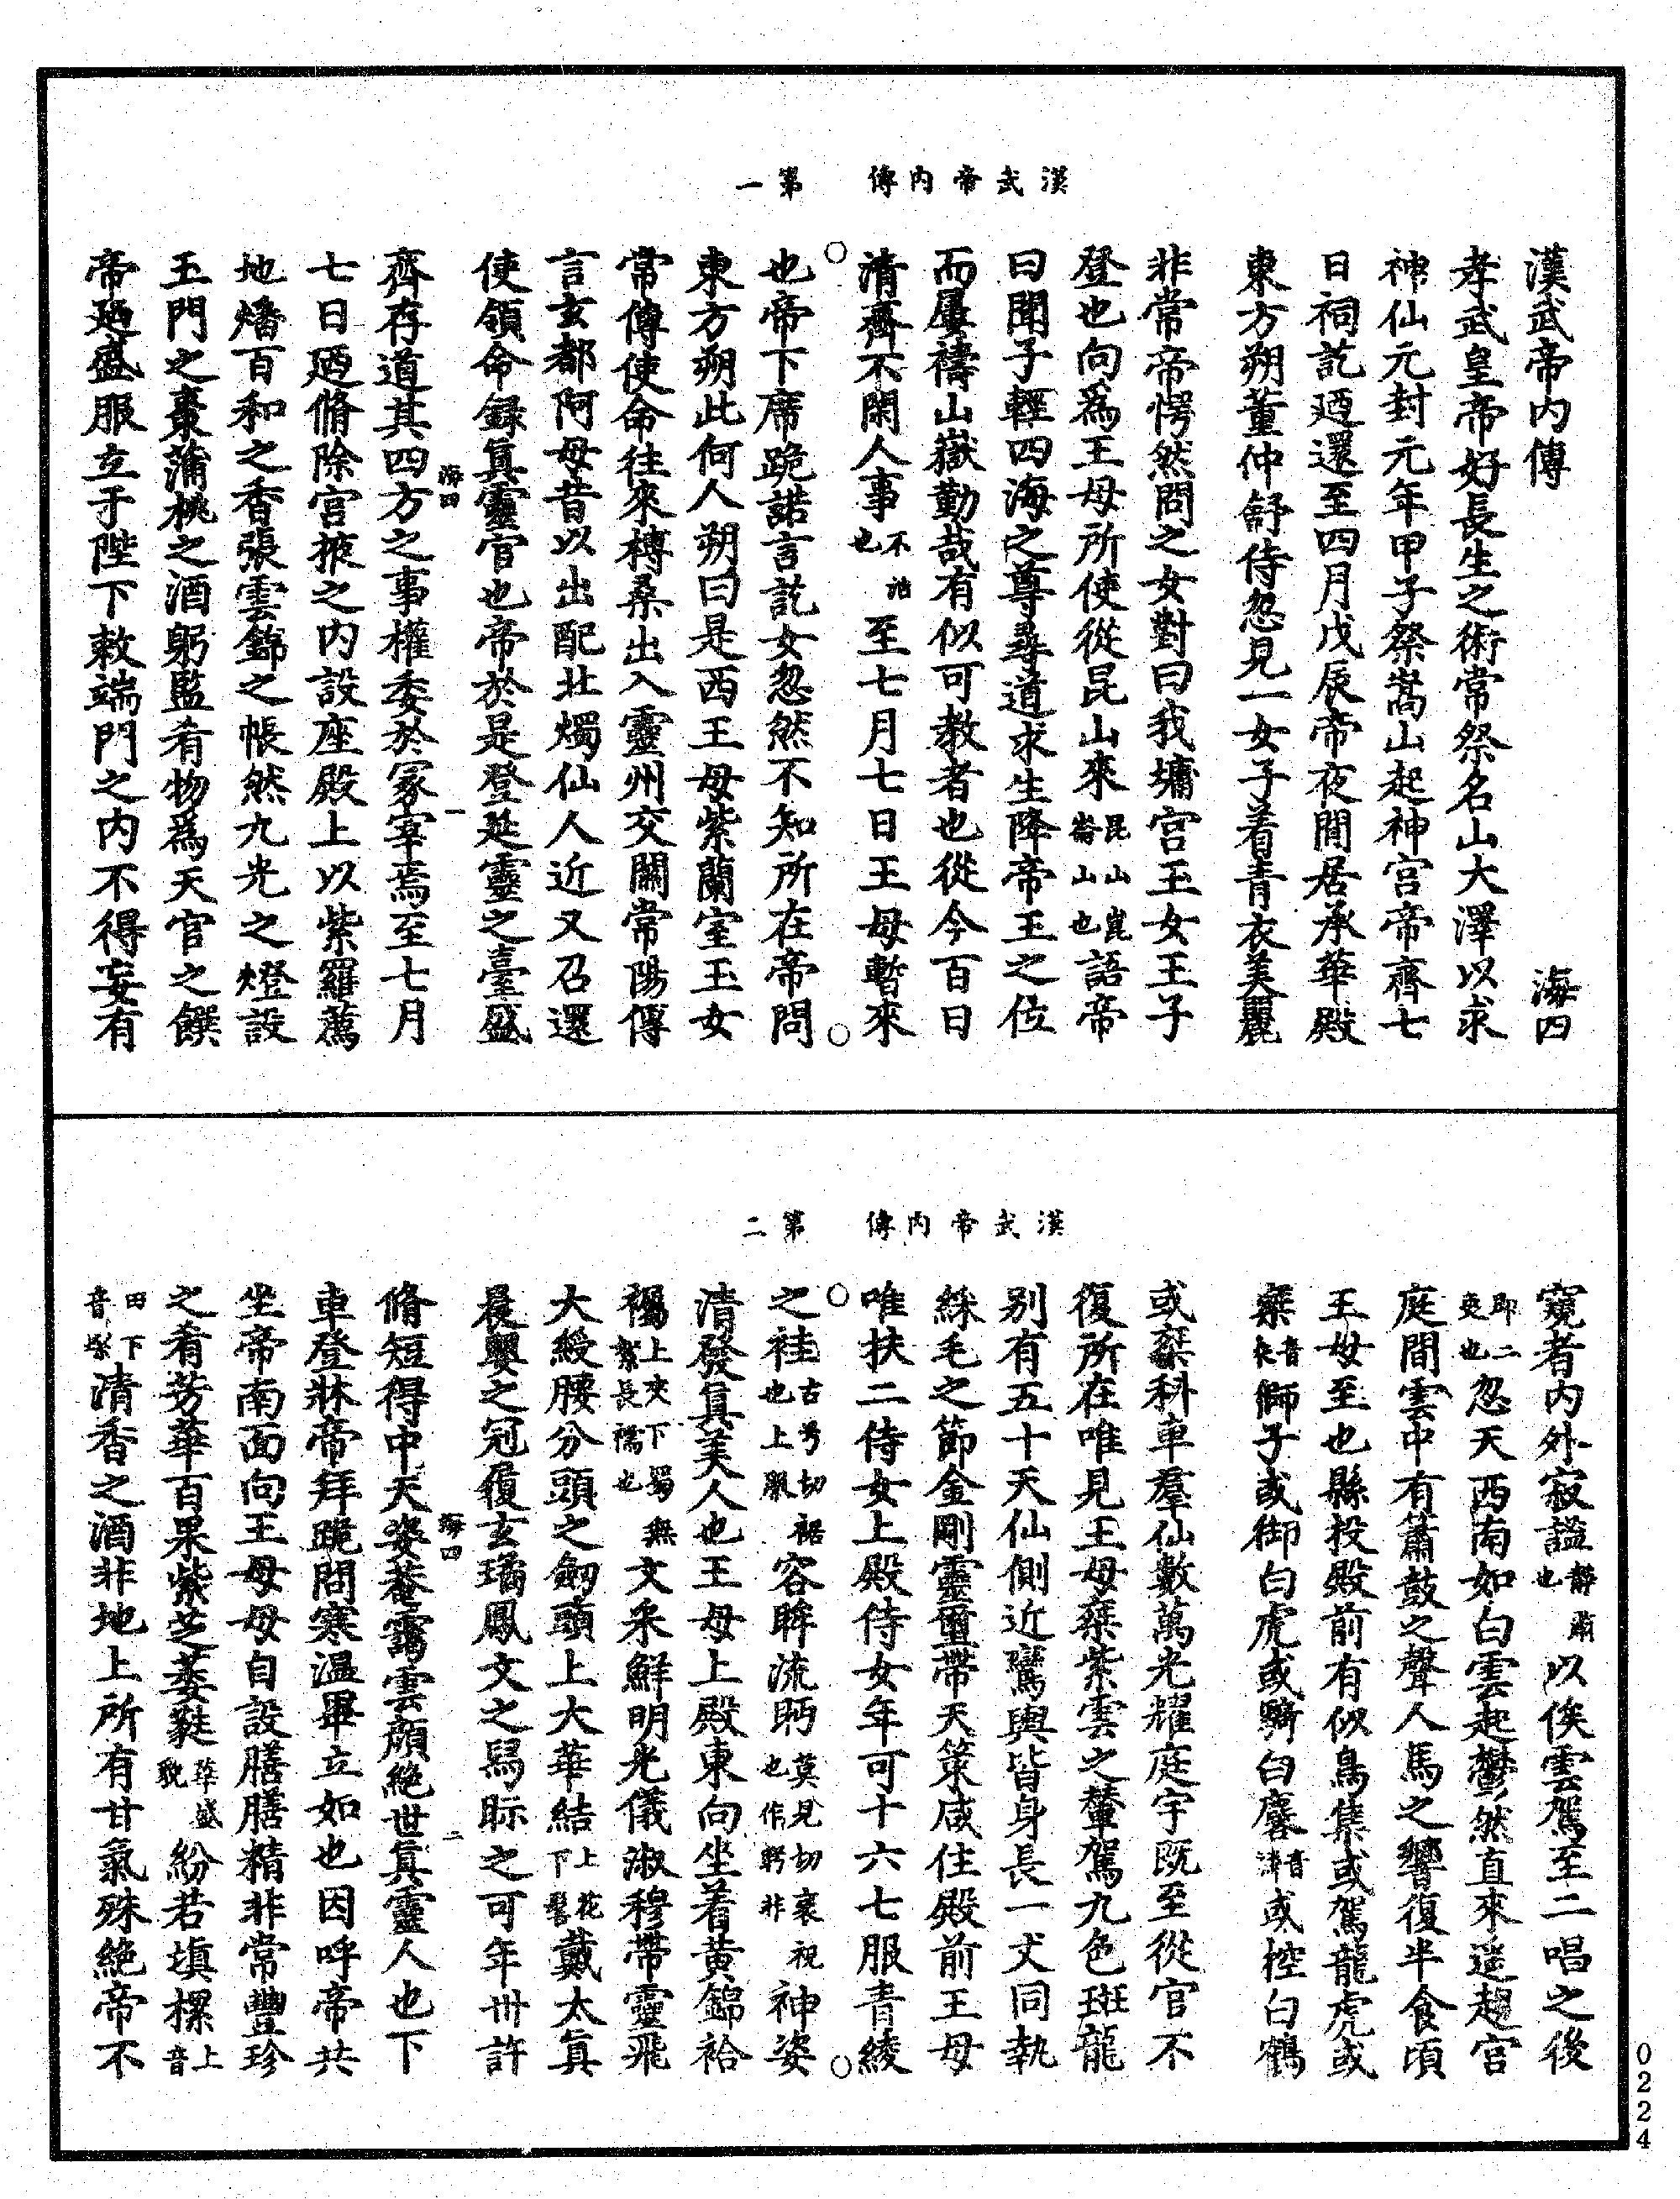 漢武帝內傳 第一
漢武帝內傳 海四
孝武皇帝好長生之術常祭名山大澤以求
神仙元封元年甲子祭嵩山起神宮帝齋七
日祠訖廼還至四月戊辰帝夜閒居承華殿
東方朔董仲舒侍忽見一女子着青衣美麗
非常帝愕然問之女對曰我墉宮玉女王子
登也向為王母所使從昆山來昆山崑崙山也語帝
曰聞子輕四海之尊尋道求生降帝王之位
而屢禱山嶽勤哉有似可教者也從今百日
清齋不閑人事不治也至七月七日王母暫來
也帝下席跪諾言訖女忽然不知所在帝問
東方朔此何人朔曰是西王母紫蘭室玉女
常傳使命往來榑桑出入靈州交關常陽傳
言玄都阿母昔以出配北燭仙人近又召還
使領命錄真靈官也帝於是登延靈之臺盛
海四 一
齋存道其四方之事權委於冢宰焉至七月
七日廼脩除宮掖之內設座殿上以紫羅薦
地燔百和之香張雲錦之帳然九光之燈設
玉門之棗蒲桃之酒躬監肴物為天官之饌
帝廼盛服立于陛下敕端門之內不得妄有
漢武帝內傳 第二
窺者內外寂謐靜肅也以俟雲駕至二唱之後
即二更也忽天西南如白雲起鬱然直來逕趨宮
庭間雲中有簫鼓之聲人馬之響復半食頃
王母至也縣投殿前有似鳥集或駕龍虎或
椉音乘獅子或御白虎或騎白麐音潾或控白鶴
或椉科車羣仙數萬光耀庭宇既至從官不
復所在唯見王母椉紫雲之輦駕九色斑龍
別有五十天仙側近鸞輿皆身長一丈同執
綵毛之節金剛靈璽帶天策咸住殿前王母
唯扶二侍女上殿侍女年可十六七服青綾
之袿古兮切裾也上服容眸流眄莫見切衺視也作眄非神姿
清發真美人也王母上殿東向坐着黃錦袷
襡上夾下蜀無絮長襦也文采鮮明光儀淑穆帶靈飛
大綬腰分頭之劒頭上大華結上花下髻戴太真
晨嬰之冠履玄璚鳳文之舄眎之可年卅許
海四 二
脩短得中天姿菴靄雲顏絕世真靈人也下
車登牀帝拜跪問寒溫畢立如也因呼帝共
坐帝南面向王母母自設膳膳精非常豐珍
之肴芳華百果紫芝萎蕤華盛貌紛若填樏上音
田下音壘清香之酒非地上所有甘氣殊絕帝不
0224